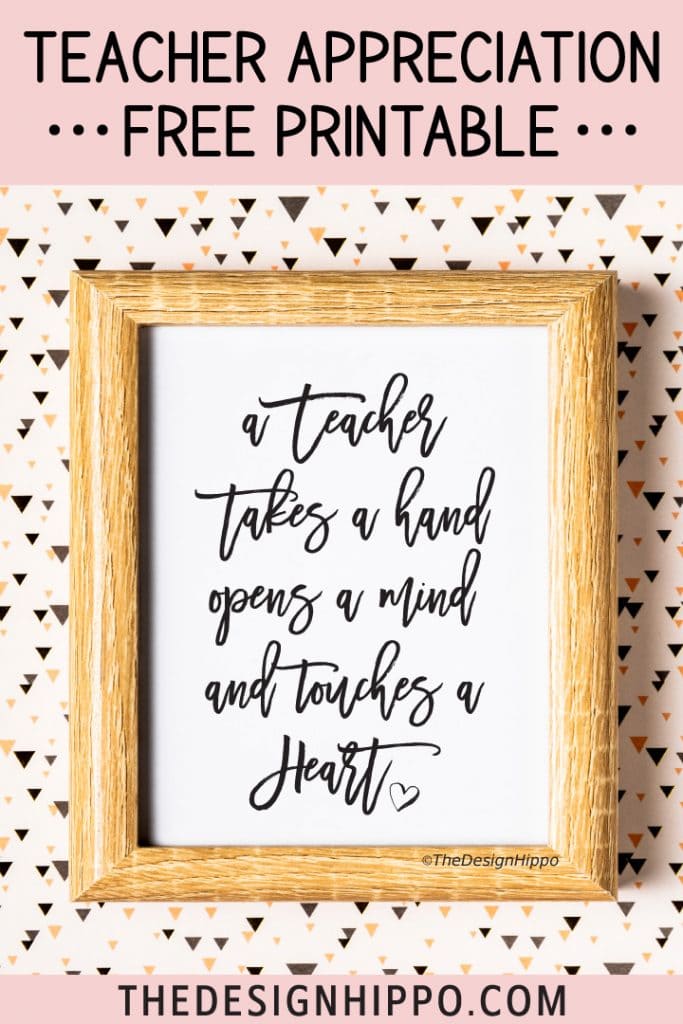 TEACHER APPRECIATION
•••FREE PRINTABLE•••
a teacher
takes a hand
opens a mind
and touches a
Heart
©TheDesignHippo
THEDESIGNHIPPO.COM